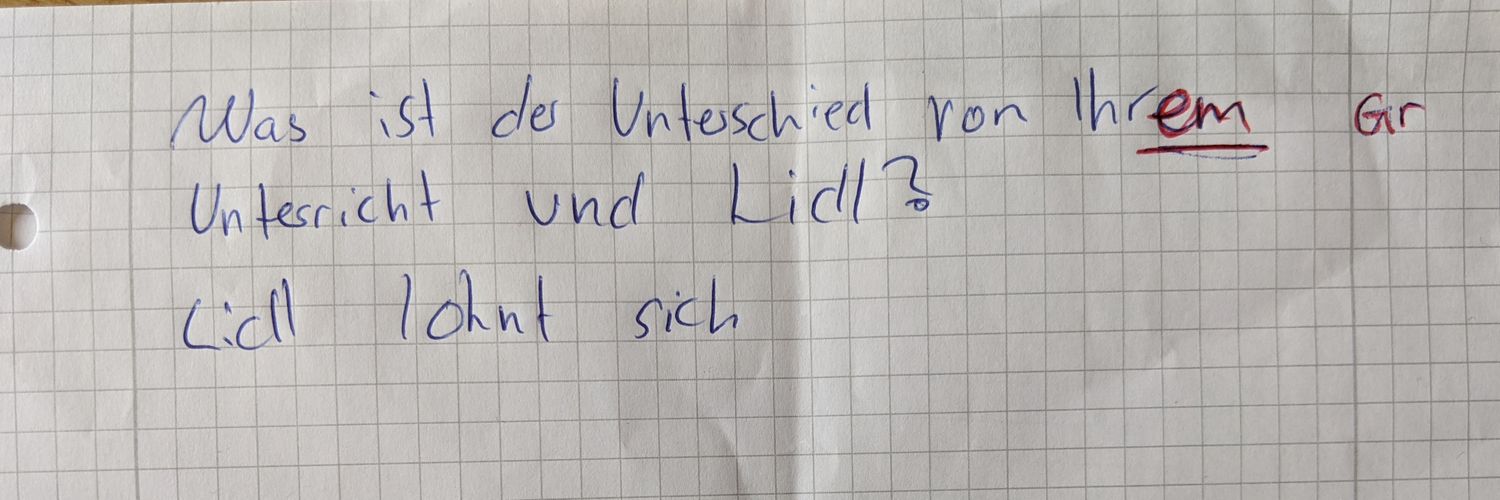 Was ist der Unterschied von Ihrem Gr
Unterricht und Lidl?
Lidl lohnt sich